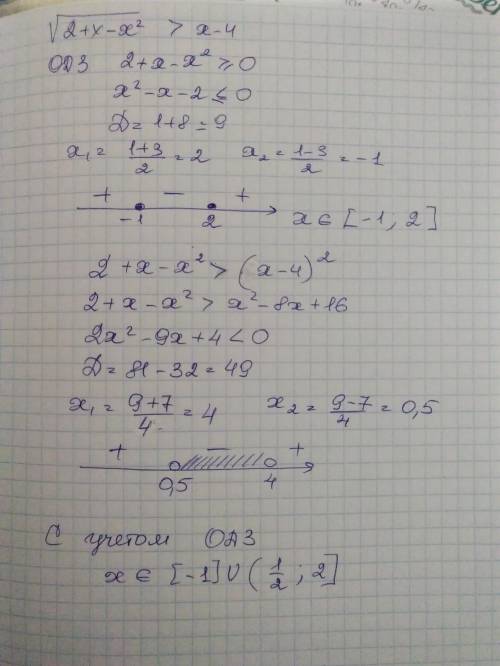 √2+x-x² > x-4
ОДЗ 2+x-x² ≥ 0
x²-x-2 ≤ 0
D = 1+8 = 9
x₁ = (1+3)/2 = 2 x₂ = (1-3)/2 = -1
+ - +
-1 2 x ∈ [-1; 2]
2+x-x² > (x-4)²
2+x-x² > x²-8x+16
2x²-9x+4 < 0
D = 81-32 = 49
x₁ = (9+7)/4 = 4 x₂ = (9-7)/4 = 0,5
+ - +
0,5 4
С учетом ОДЗ
x ∈ [-1] ∪ (1/2; 2]